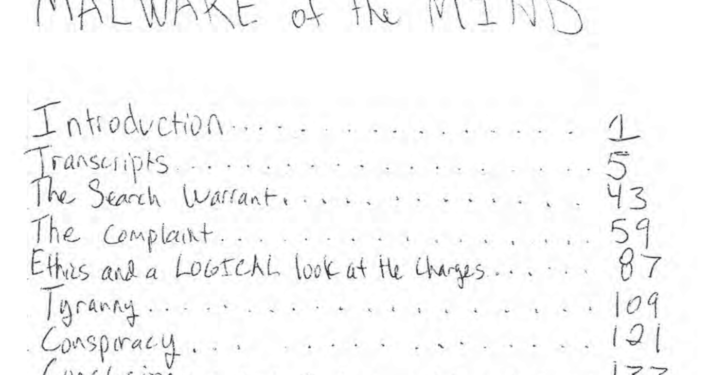 MALWARE of the MIND
Introduction . . . . . . . . . . . . 1
Transcripts . . . . . . . . . . . . . . 5
The Search Warrant . . . . . . . . . . . 43
The Complaint . . . . . . . . . . . . . 59
Ethics and a LOGICAL look at the Charges . . . . . . 87
Tyranny . . . . . . . . . . . . . . 109
Conspiracy . . . . . . . . . . . . 121
Conclusion